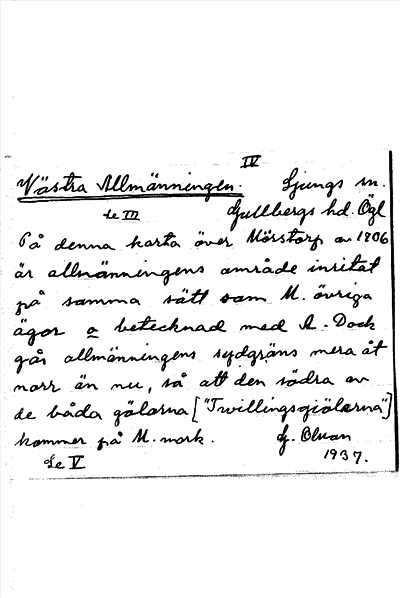 IV
Västra Allmänningen. Ljungs sn.
Se III Gullbergs hd. Ögl
På denna karta över Mörstorp av 1806
är allmänningens område inritat
på samma sätt som M. övriga
ägor o betecknad med A. Dock
går allmänningens sydgräns mera åt
norr än nu, så att den södra av
de båda gölarna ["Twillingsgiölarna"]
kommer på M. mark. G. Olson
Se V 1937.